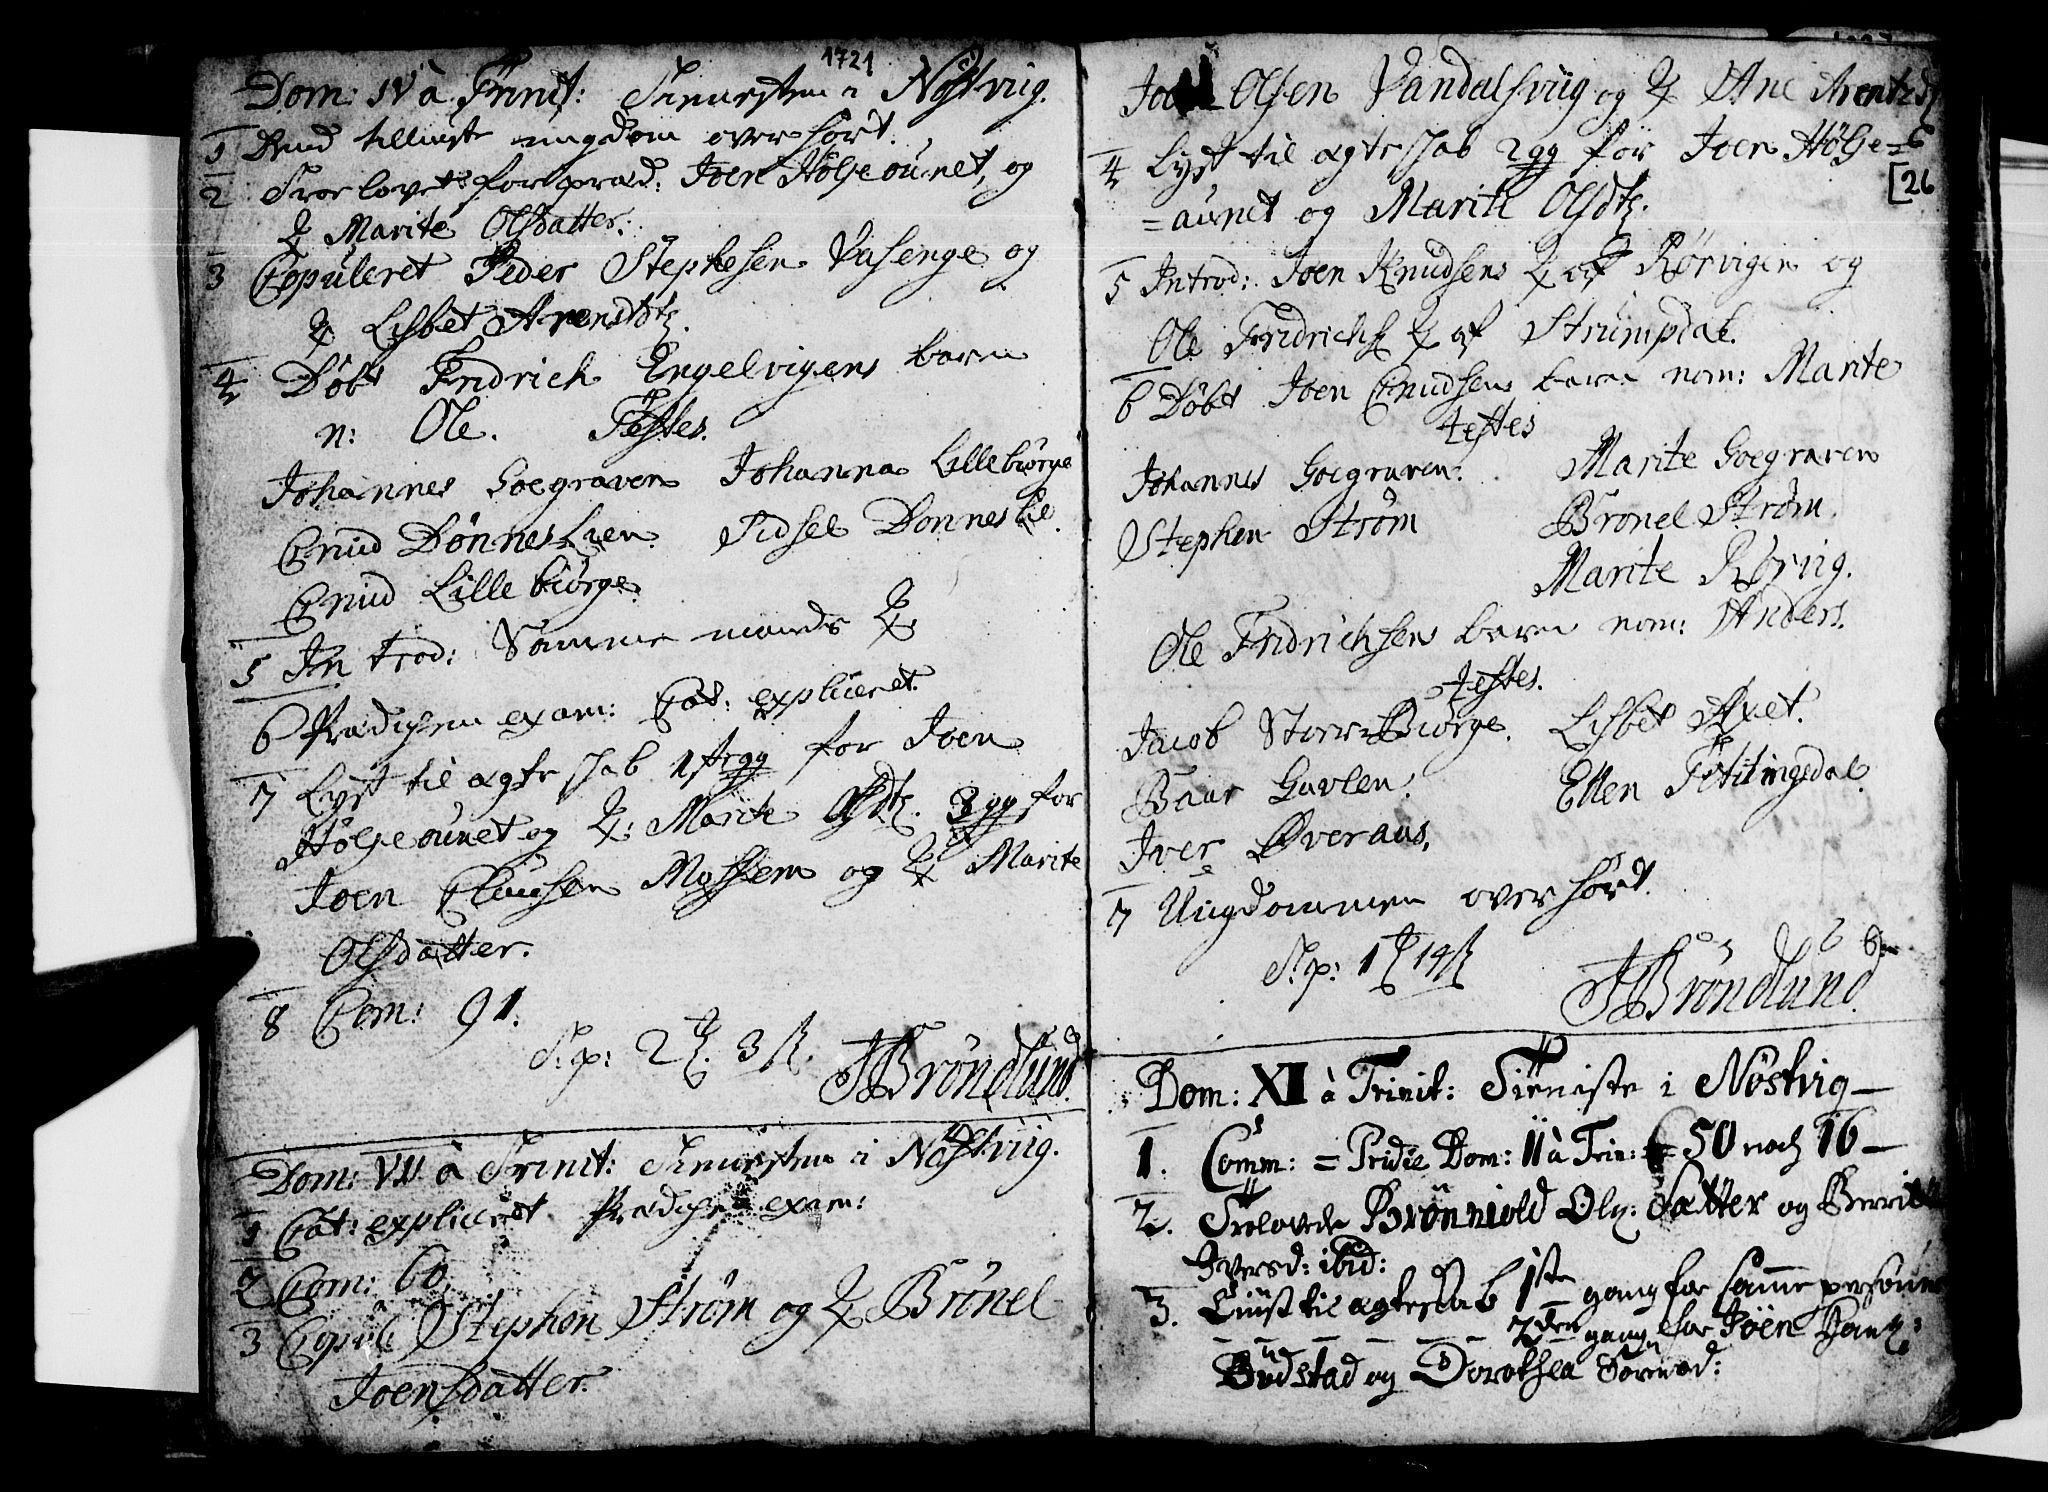 1721
Dom: IV à Trinit: Tienesten i Nöstvig.
1 Dend tillziste ungdom overhört.
2 Troelovet forpræd: Joen Hölje ounet, og
Q Marite Olsdatter.
3 Copuleret Peder Stephesen Vasenge og
Q Lisbet Arensdtr.
4 Döbt Fridrich Engelvigens barn
n: Ole. Testes.
Johannes Goegraven Johanna Lillebiörge
Cnud Dönneslien Sidsel Donneslie
Cnud Lillebiörge
5 Introd: Samme mands Q
6 Prædichen exam: Cat: expliceret.
7 Lyst til ægteskab 1ste gg for Joen
Höljeounet og Q: Marite Olsdtr. 3 gg for
Joen Clausen Mossem og Q Marite
Olsdatter.
8 Com: 91.
T:p: 2 3 ß.
JBröndlund.
Dom: VII à Trinit: Tienesten i Nöstviig.
1 Cat: expliceret Prædichen exam:
2 Com: 60.
3 Copul: Stephen Ström og Q Brönel
Joensdatter.
6
[26
Joen Olsen Vandalsviig og Q Ane Arentzd
4 Lyst til ægteskab 2 gg for Joen Hölje=
=aunet og Marite Olsdtr.
5 Introd: Joen Knudsens Q af Rörvigen og
Ole Fridrichs Q af Strumpdal.
6 Döbt Joen Cnudsens barn nom: Marite
testes
Johannes Goegraven. Marite Goegraven
Stephen Ström Brönel Ström.
Marite Rörvig.
Ole Fridrichsens barn nom: Anders.
testes.
Jacob StoreBiörge. Lisbet Axet.
Baar Gavlen. Ellen Tititingsdal.
Iver Överaas.
7 Ungdommen overhört.
T:p: 1 14 ß
JBröndlund.
Dom: XI à Trinit: Tieniste i Nöstvig
1. Comm: = Pridie Dom: 11 à Trin: 50 noch 16
2. Trolovede Brönniold Ols: Sætter og Berrit
Iversd: ibid:
3. Liust til ægteskab 1ste gang for samme persouner
2den gang for Jöen Hans:
Budstad og Dorothea